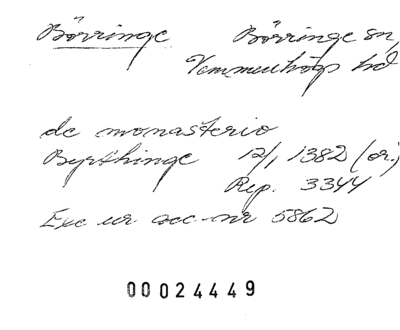 Börringe Börringe sn,
Vemmenhögs hd
de monasterio
Byrthinge 12/1 1382 (or.)
Rep. 3344
Exc ur acc-nr 5862
00024449